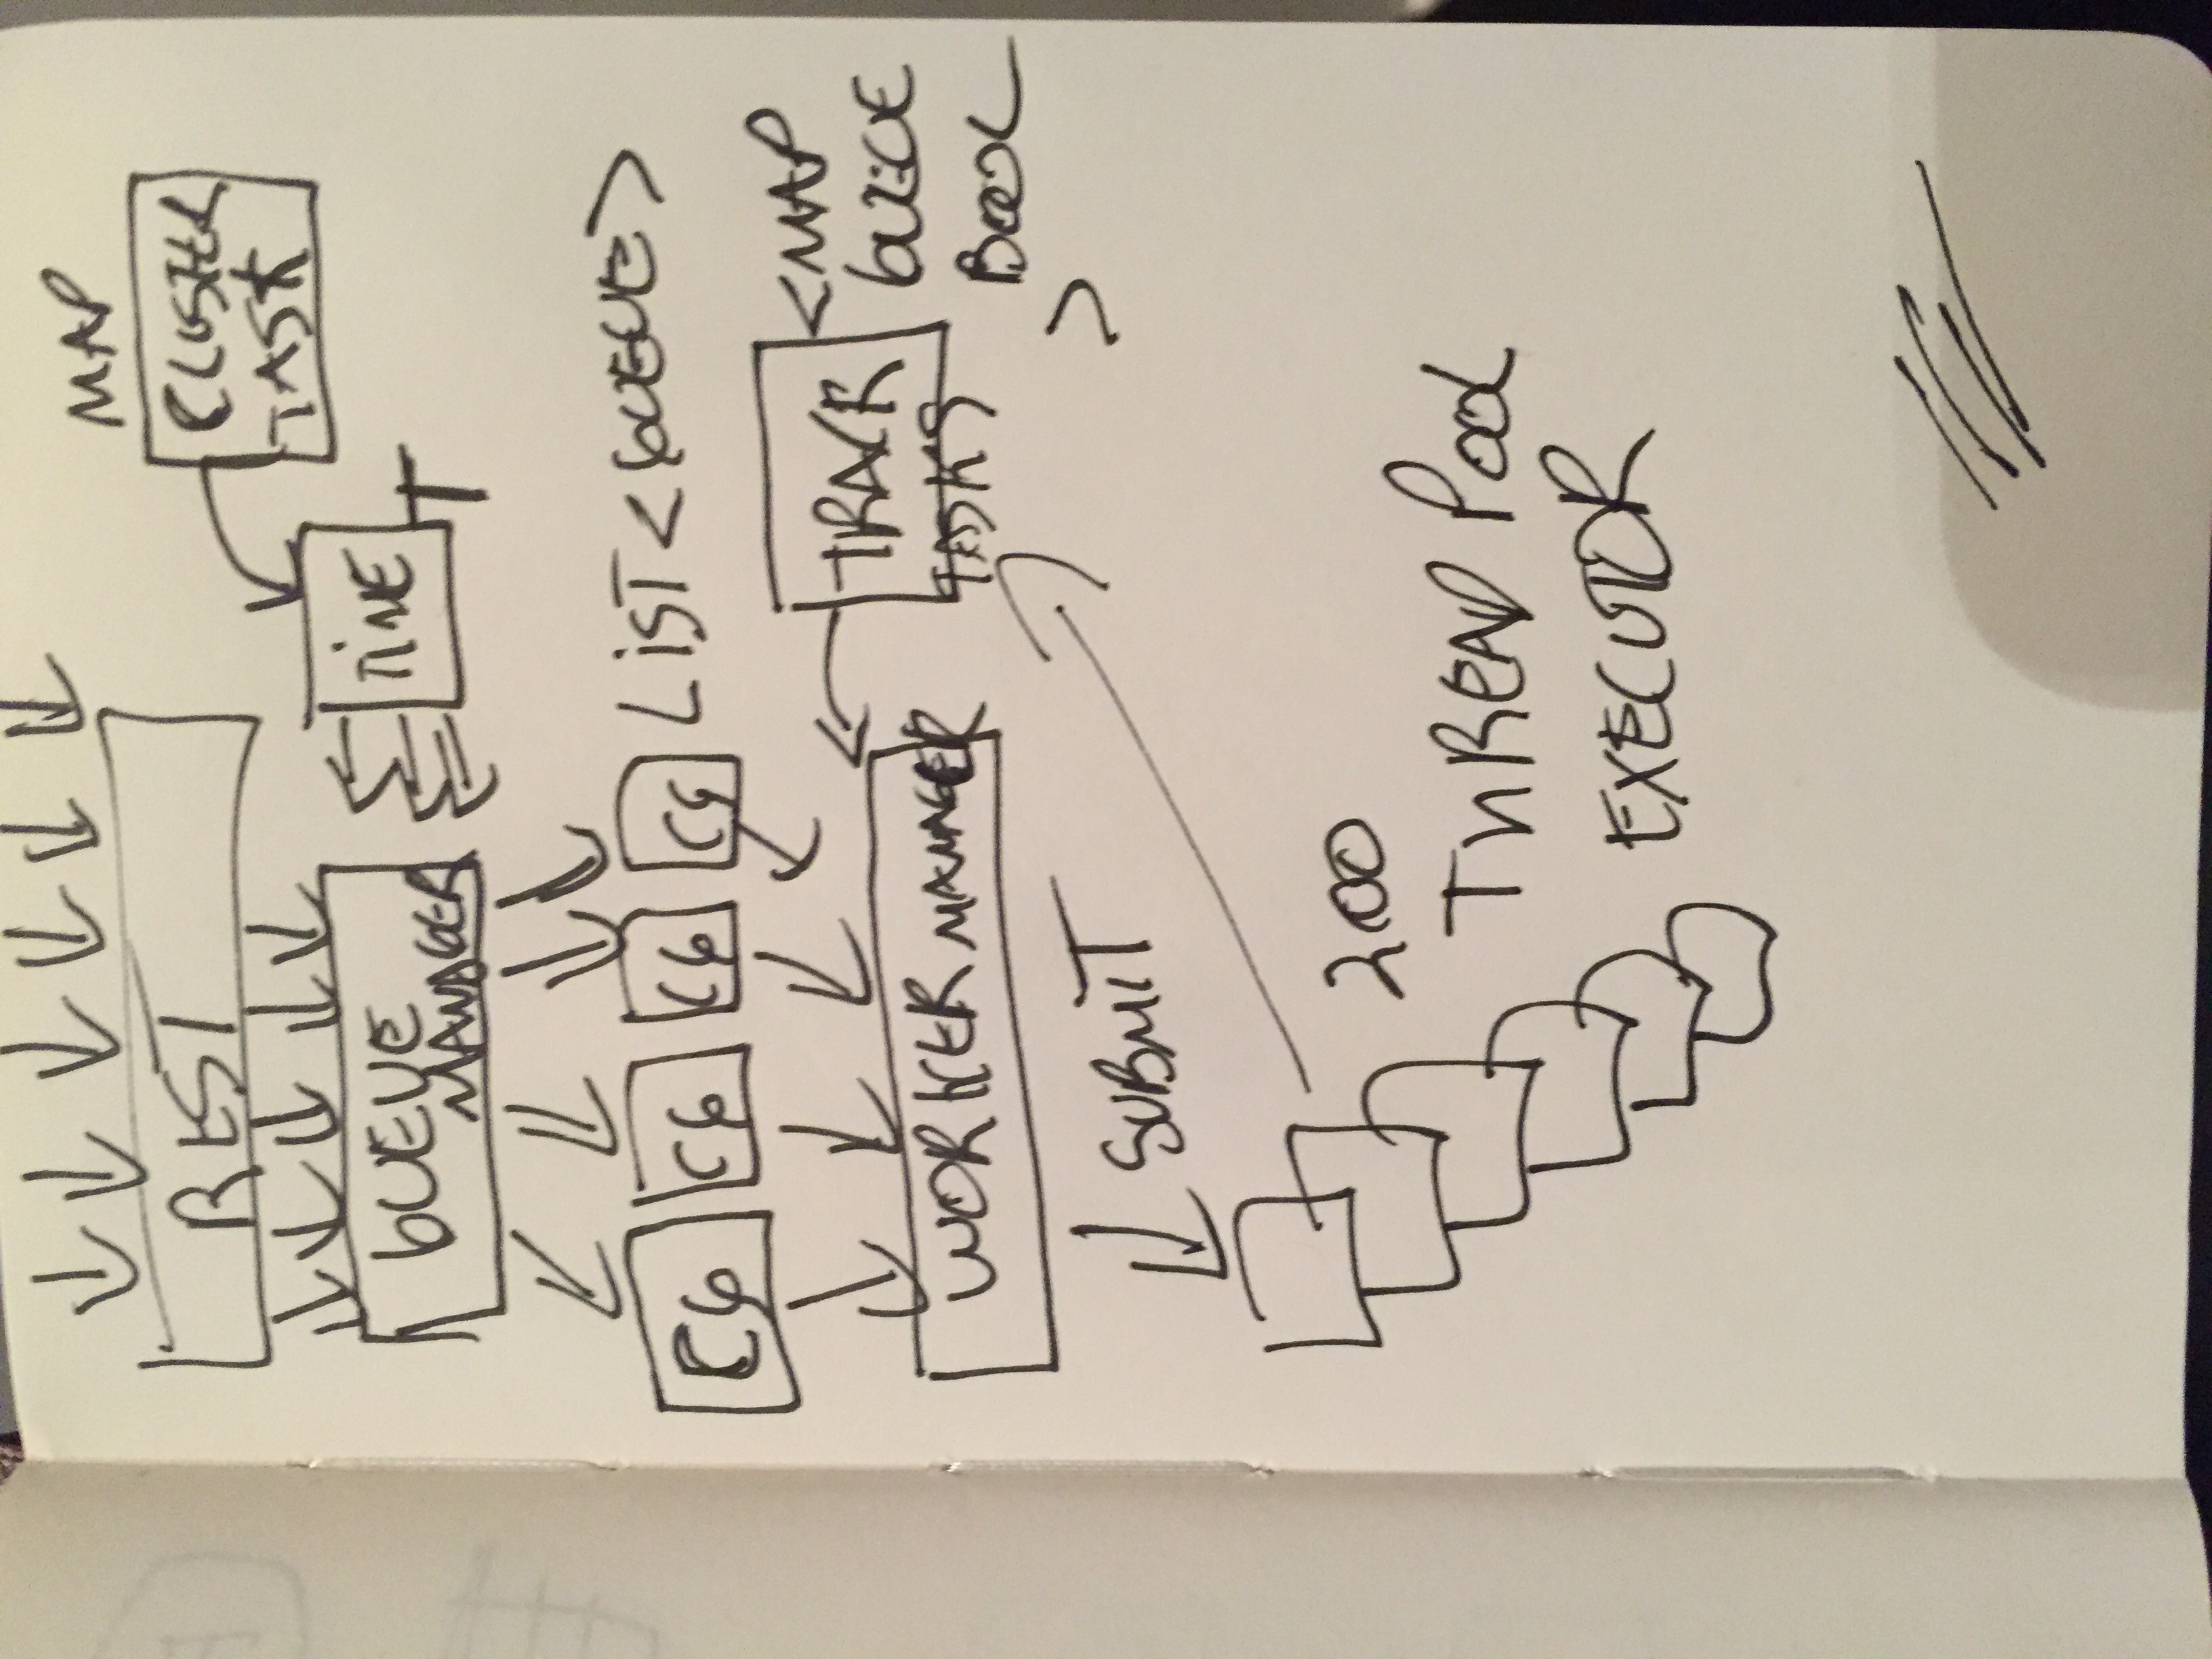 REST
MAP
CLUSTER
TASK
QUEUE
MANAGER
TIME
CQ CQ CQ CQ
LIST<QUEUE>
TRACK
TASKS
<MAP
QUEUE
BOOL
>
WORKER MANAGER
SUBMIT
200
THREAD POOL
EXECUTOR